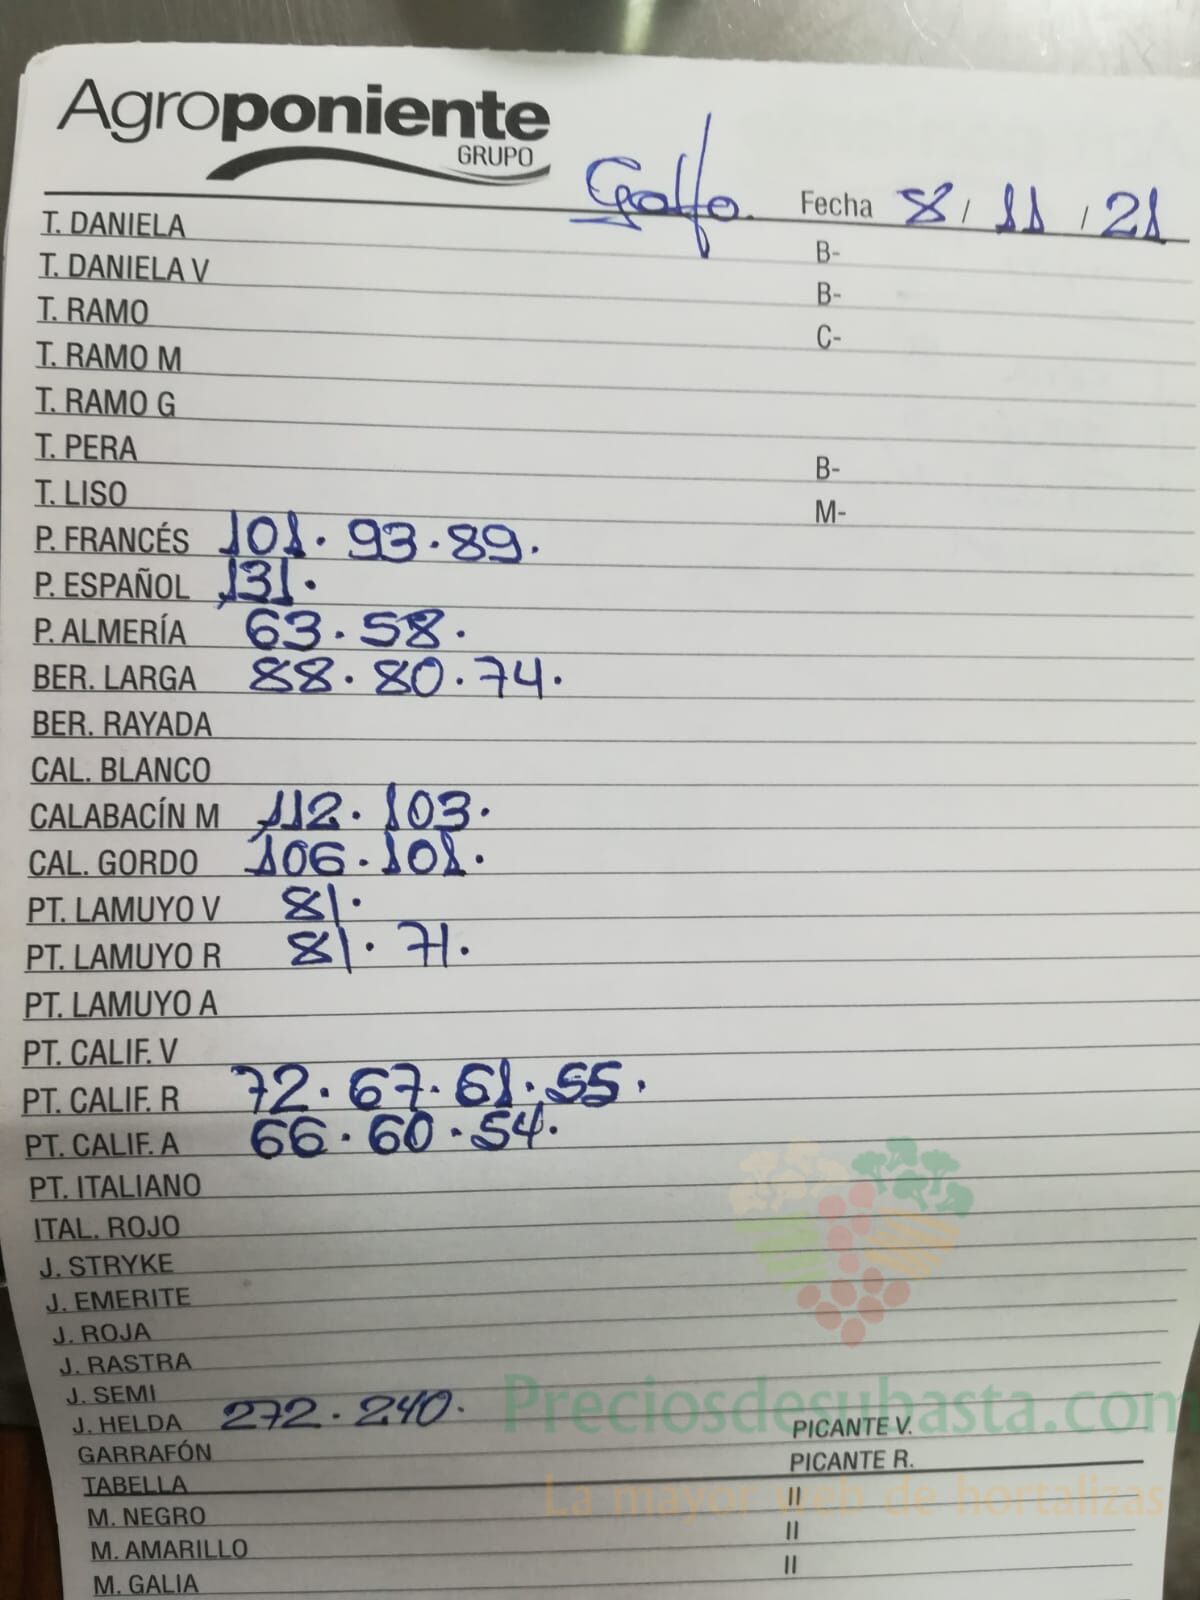 Agroponiente
GRUPO
Golfo. Fecha 8 / 11 / 21
T. DANIELA B-
T. DANIELA V B-
T. RAMO C-
T. RAMO M
T. RAMO G
T. PERA B-
T. LISO M-
P. FRANCÉS 101. 93. 89.
P. ESPAÑOL 131.
P. ALMERÍA 63. 58.
BER. LARGA 88. 80. 74.
BER. RAYADA
CAL. BLANCO
CALABACÍN M 112. 103.
CAL. GORDO 106. 101.
PT. LAMUYO V 81.
PT. LAMUYO R 81. 71.
PT. LAMUYO A
PT. CALIF. V
PT. CALIF. R 72. 67. 61. 55.
PT. CALIF. A 66. 60. 54.
PT. ITALIANO
ITAL. ROJO
J. STRYKE
J. EMERITE
J. ROJA
J. RASTRA
J. SEMI
J. HELDA 272. 240.
Preciosdesubasta.com
GARRAFÓN PICANTE V.
TABELLA PICANTE R.
La mayor web de hortalizas
M. NEGRO II
M. AMARILLO II
M. GALIA II